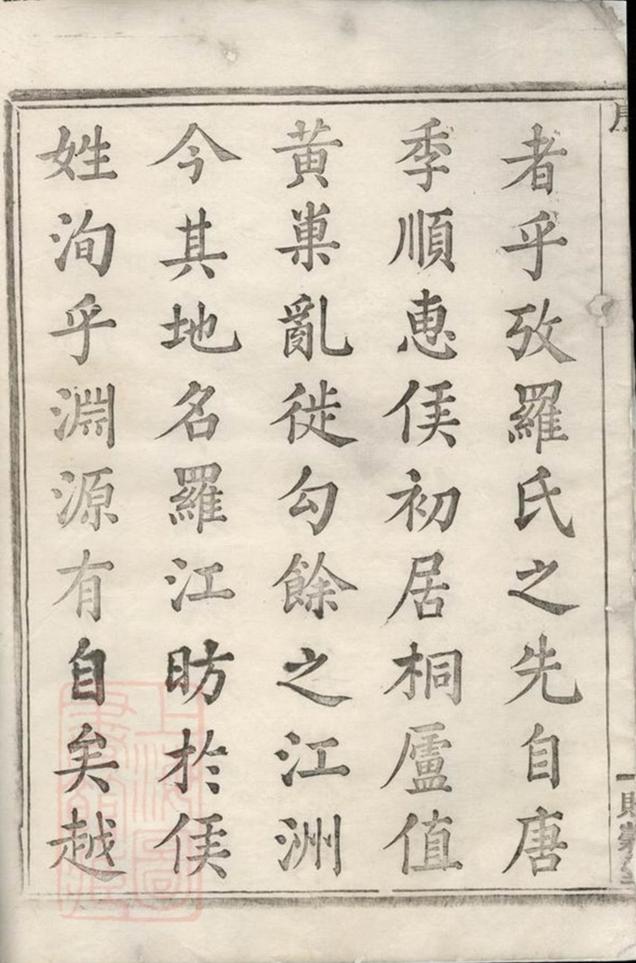 者乎攷羅氏之先自唐
季順惠侯初居桐廬值
黃巢亂徙勾餘之江洲
今其地名羅江昉於侯
姓洵乎淵源有自矣越
序
一